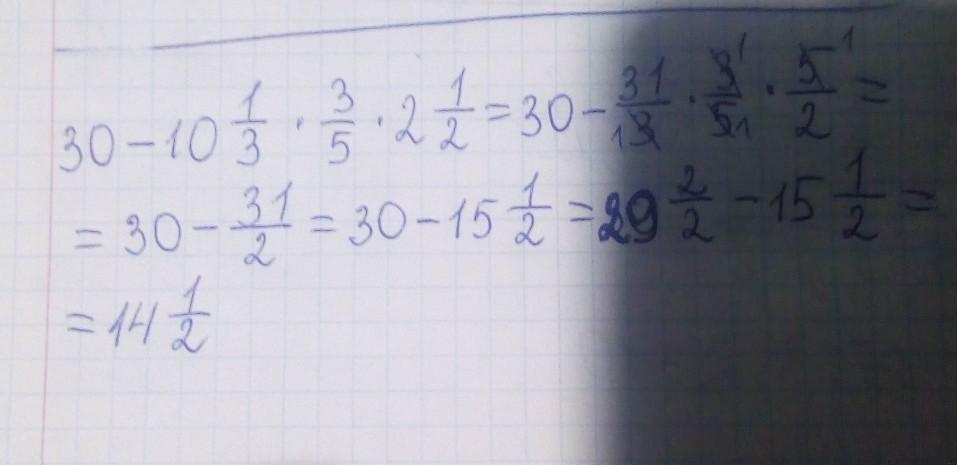 30 - 10 1/3 · 3/5 · 2 1/2 = 30 - 31/3 · 3/5 · 5/2 =
= 30 - 31/2 = 30 - 15 1/2 = 29 2/2 - 15 1/2 =
= 14 1/2